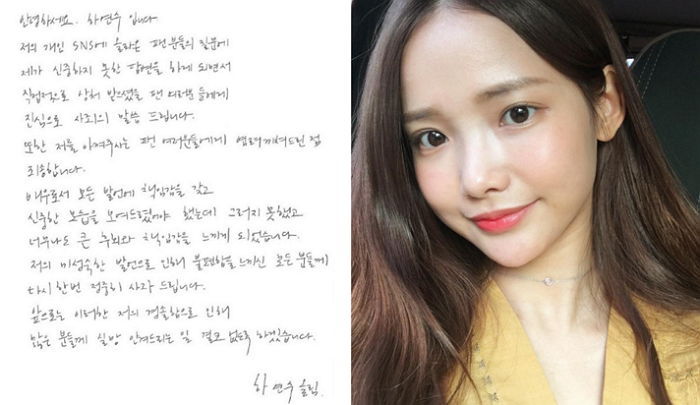 안녕하세요. 하연수 입니다
저의 개인 SNS에 올라온 팬 분들의 질문에
제가 신중하지 못한 답변을 하게 되면서
직접적으로 상처 받으셨을 팬 여러분들에게
진심으로 사죄의 말씀 드립니다.
또한 저를 아껴주시는 팬 여러분들에게 염려끼쳐드린 점
죄송합니다.
배우로서 모든 발언에 책임감을 갖고
신중한 모습을 보여드렸어야 했는데 그러지 못했고
너무나도 큰 후회와 책임감을 느끼게 되었습니다.
저의 미성숙한 발언으로 인해 불편함을 느끼신 모든 분들께
다시 한번 정중히 사과 드립니다.
앞으로는 이러한 저의 경솔함으로 인해
많은 분들께 실망 안겨드리는 일 결코 없도록 하겠습니다.
하연수 올림.